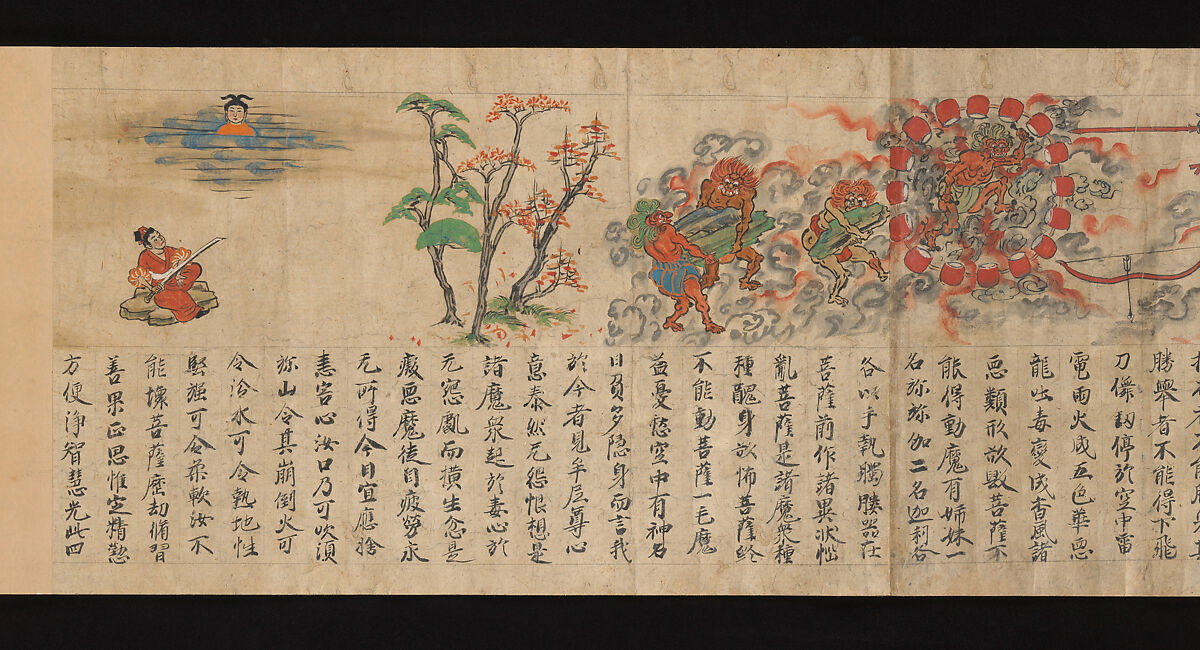 勝舉者不能得下飛
刀儛釼停於空中雷
電雨火成五色華惡
龍吐毒變成香風諸
惡類形欲毀菩薩不
能得動魔有姉妹一
名弥弥伽二名迦利各
各以手執髑髏器在
菩薩前作諸異狀惱
亂菩薩是諸魔衆種
種醜身欲怖菩薩終
不能動菩薩一毛魔
益憂愁空中有神名
曰負多隱身而言我
於今者見牟尼尊心
意泰然无怨恨想是
諸魔衆起於毒心於
无怨處而橫生忿是
癡惡魔徒自疲勞永
无所得今日宜應捨
恚害心汝口乃可吹須
弥山令其崩倒火可
令冷水可令熱地性
堅强可令柔軟汝不
能壞菩薩歷劫脩習
善果正思惟定精懃
方便淨智慧光此四